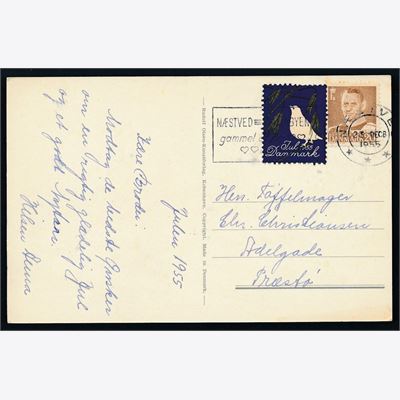 Julen 1955
Kære Broder!
Modtag de bedste Ønsker
om en rigtig glædelig Jul
og et godt Nytaar.
Hilsen Anna
Rudolf Olsens Kunstforlag, København. Copyright. Made in Denmark.
NÆSTVED
gammel
Jul 1955
Danmark
DEC 8
1955
Hrr. Tøffelmager
Chr. Christiansen
Adelgade
Præstø